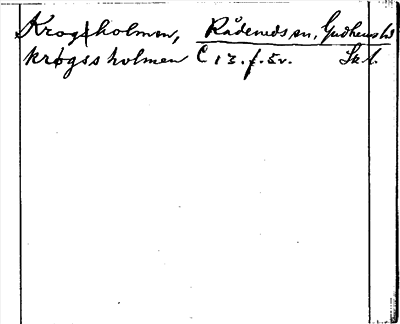 Krogsholmen, Rådeneds sn, Gudhems hd
krøgss holmen C 13.f.5v. Sk l.